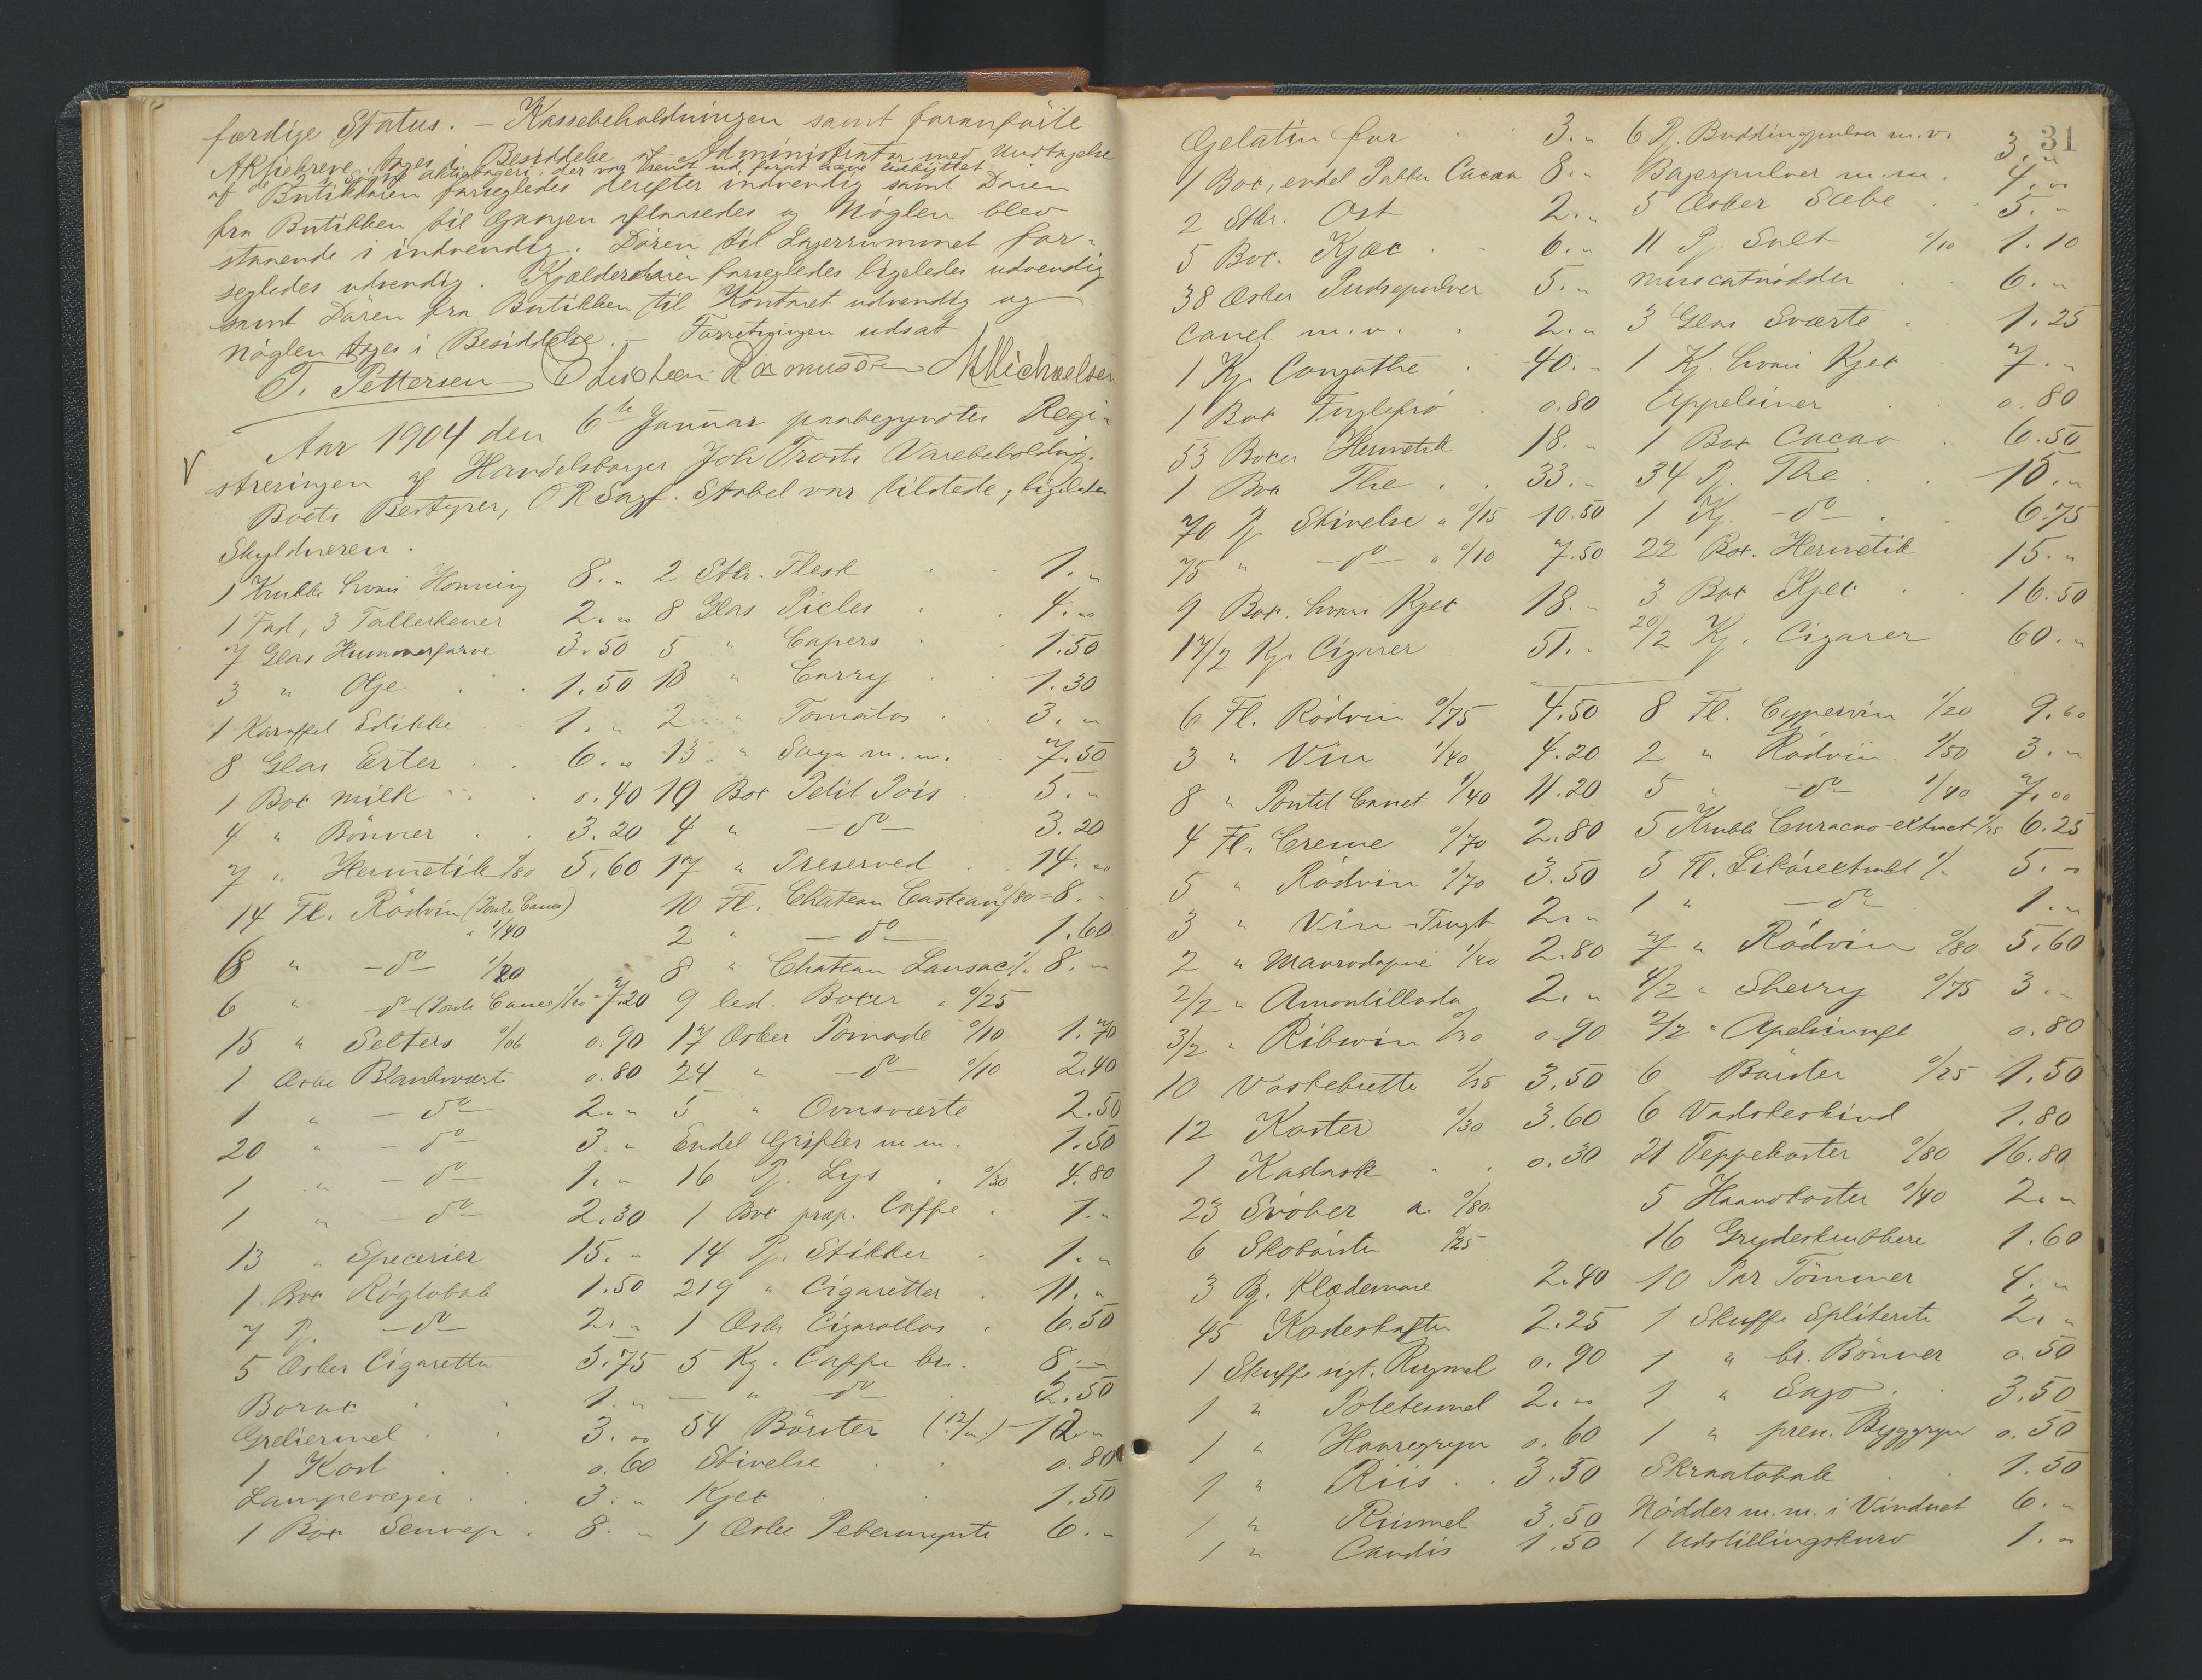 færdige Status. – Kassebeholdningen samt foranførte
Aktiebreve tages i Besiddelse af Administrator med Undtagelse
af Butikdøren forsegledes derefter indvendig samt Døren
fra Butikken til Gangen aflaasedes og Nøglen blev
staaende i indvendig. Døren til Lagerrummet for-
segledes udvendig. Kjælderdøren forsegledes ligeledes udvendig
samt Døren fra Butikken til Kontoret udvendig og
Nøglen tages i Besiddelse. – Forretningen udsat
T. Pettersen Christian Rasmussen M Michaelsen
Aar 1904 den 6te Januar paabegyndtes Regi-
streringen af Handelsborger Joh Trosts Varebeholdning.
Boets Bestyrer, ORSagf. Stabel var tilstede; ligeledes
Skyldneren.
1 Krukke Honning 8. " 2 Stkr. Flesk 1. "
1 Fad, 3 Tallerkener 2. " 8 Glas Picles 4. "
7 Glas Hummerfarve 3.50 5 " Capers 1.50
3 " Olje 1.50 13 " Carry 1.30
1 Karaffel Edikke 1. " 2 " Tomatos 3. "
8 Glas Erter 6. " 13 " Soya m.m. 7.50
1 Box milk 0.40 19 Box Petit Pois 5. "
4 " Bönner 3.20 4 " – do – 3.20
7 " Hermetik 0/80 5.60 17 " Preserved 14. "
14 Fl. Rödvin (Ponte Canet) 10 Fl. Chateau Casteau 0/80 = 8. "
1/40 2 " – do – 1.60
6 " – do – 1/20 8 " Chateau Lansac 1/" 8. "
6 " do (Ponte Canet) 1/20 = 7.20 9 led. Boxer a 0/25
15 " Selters 0/06 0.90 17 Æsker Pomade 0/10 1.70
1 Æske Blanksværte 0.80 24 " – do – 0/10 2.40
1 " – do – 2. " 5 " Ovnsværte 2.50
20 " – do – 3. " Endel Grifler m.m. 1.50
1 " – do – 1. " 16 Pj. Lys 0/30 4.80
1 " – do – 2.30 1 Box præp. Caffe 1. "
13 " Specerier 15. " 14 Pj. Stikker 1. "
1 Box Røgtobak 1.50 219 " Cigaretter 11. "
7 Pj. – do – 2. " 1 Æske Cigarollos 6.50
5 Æsker Cigaretter 3.75 5 Kg. Caffe br. 8. "
Borax 1. " – " – do – 2.50
3. " 54 Börster (12/m.) – 12. "
1 Kost 0.60 Stivelse 0.80
Lampevæger 3. " Kjex 1.50
1 Box Sennep 8. " 1 Æske Pebermynte 6. "
31
Gelatin for 3. " 6 Pj. Buddingpulver m.v. 3. "
1 Box, endel Pakker Cacao 8. " Bagerpulver m.m. 4. "
2 Stkr. Ost 2. " 5 Æsker Sæbe 5. "
5 Box. Kjæx 6. " 11 Pj. Salt 0/10 1.10
38 Æsker Pudsepulver 5. " Muscatnödder 6. "
Canel m.v. 2. " 3 Glas Sværte 1.25
1 Kj. Congothe 40. " 1 Kj. Kjex 7. "
1 Box Fuglefrö 0.80 Appelsiner 0.80
53 Boxer Hermetik 18. " 1 Box Cacao 6.50
1 Box The 33. " 34 Pj. The 10. "
70 Pj. Stivelse a 0/15 10.50 1 Kj. – do – 6.75
75 " – do – a 0/10 7.50 22 Box. Hermetik 15. "
9 Box. Kjex 18. " 3 Box Kjex 16.50
17/2 Kj. Cigarer 51. " 20/2 Kj. Cigarer 60. "
6 Fl. Rödvin 0/75 4.50 8 Fl. Cypervin 1/20 9.60
3 " Vin 1/40 4.20 2 " Rödvin 1/50 3. "
8 " Pontet Canet 1/40 11.20 5 " – do – 1/40 7.00
4 Fl. Creme 0/70 2.80 5 Krukk Curacao-extract 1/25 6.25
5 " Rödvin 0/70 3.50 5 Fl. Likörextrakt 1/" 5. "
3 " Vin-Frugt 2. " 1 " – do – 1. "
2 " Mavrodapne 1/40 2.80 7 " Rödvin 0/80 5.60
2/2 " Amontillado 2. " 4/2 " Sherry 0/75 3. "
3/2 " Ribsvin 0/30 0.90 2/2 " 0.80
10 Vaskebrette 0/35 3.50 6 Börster 0/25 1.50
12 Koster 0/30 3.60 6 Vadskeskind 1.80
1 Kadask 0.30 21 Teppekoster 0/80 16.80
23 Svöber a. 0/80 5 Haandkoster 0/40 2. "
6 Skobörster 0/25 16 Grydeskrubbere 1.60
3 Klædesnore 2.40 10 Par Tömmer 4. "
45 Kosteskafter 2.25 1 Skuffe Spliterter 2. "
1 Skuffe sigt. Rugmel 0.90 1 " br. Bönner 0.50
1 " Potetesmel 2. " 1 " Sago 3.50
1 " Havregryn 0.60 1 " Byggryn 0.50
1 " Riis 3.50 Skraatobak 1.50
1 " Riismel 3.50 Nödder m.m. i Vinduet 6. "
1 " Candis 1.50 1 Udstillingskurv 1. "